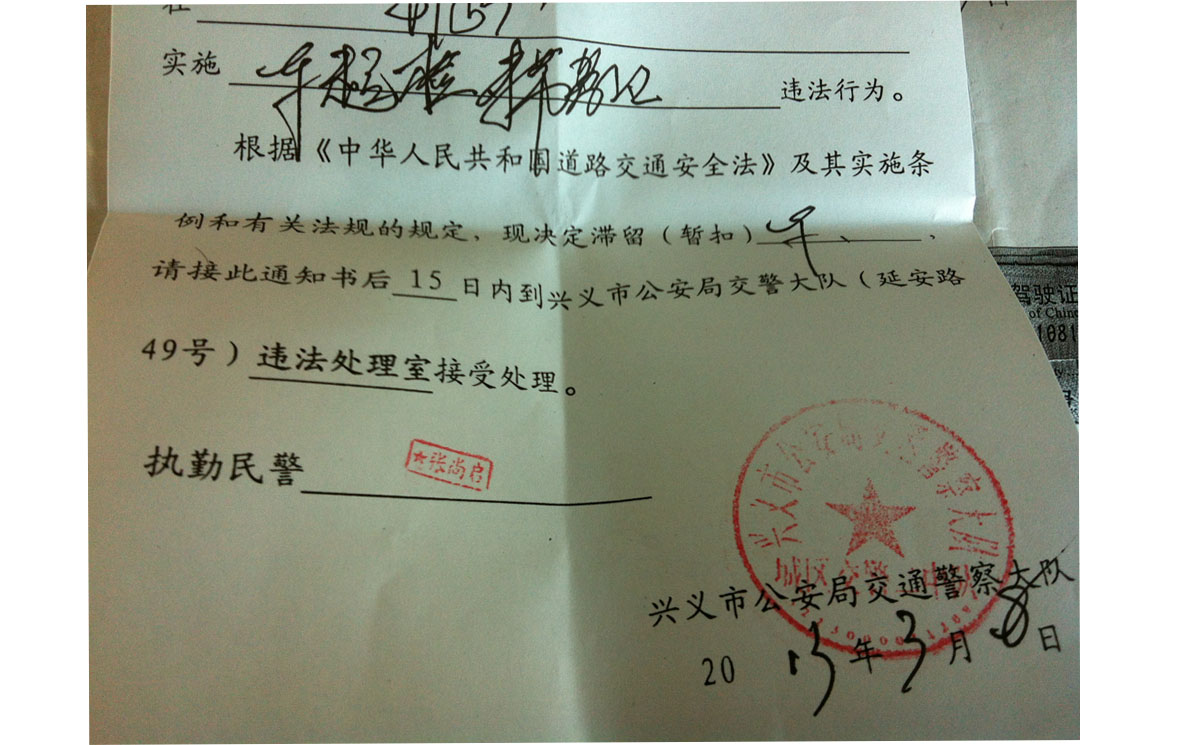 实施 违法行为。
根据《中华人民共和国道路交通安全法》及其实施条
例和有关法规的规定，现决定滞留（暂扣）车、
请接此通知书后 15 日内到兴义市公安局交警大队（延安路
49号）违法处理室接受处理。
执勤民警 ★张尚启
兴义市公安局交通警察大队
城区交警
兴义市公安局交通警察大队
2013年3月8日
驾驶证
of China
1081